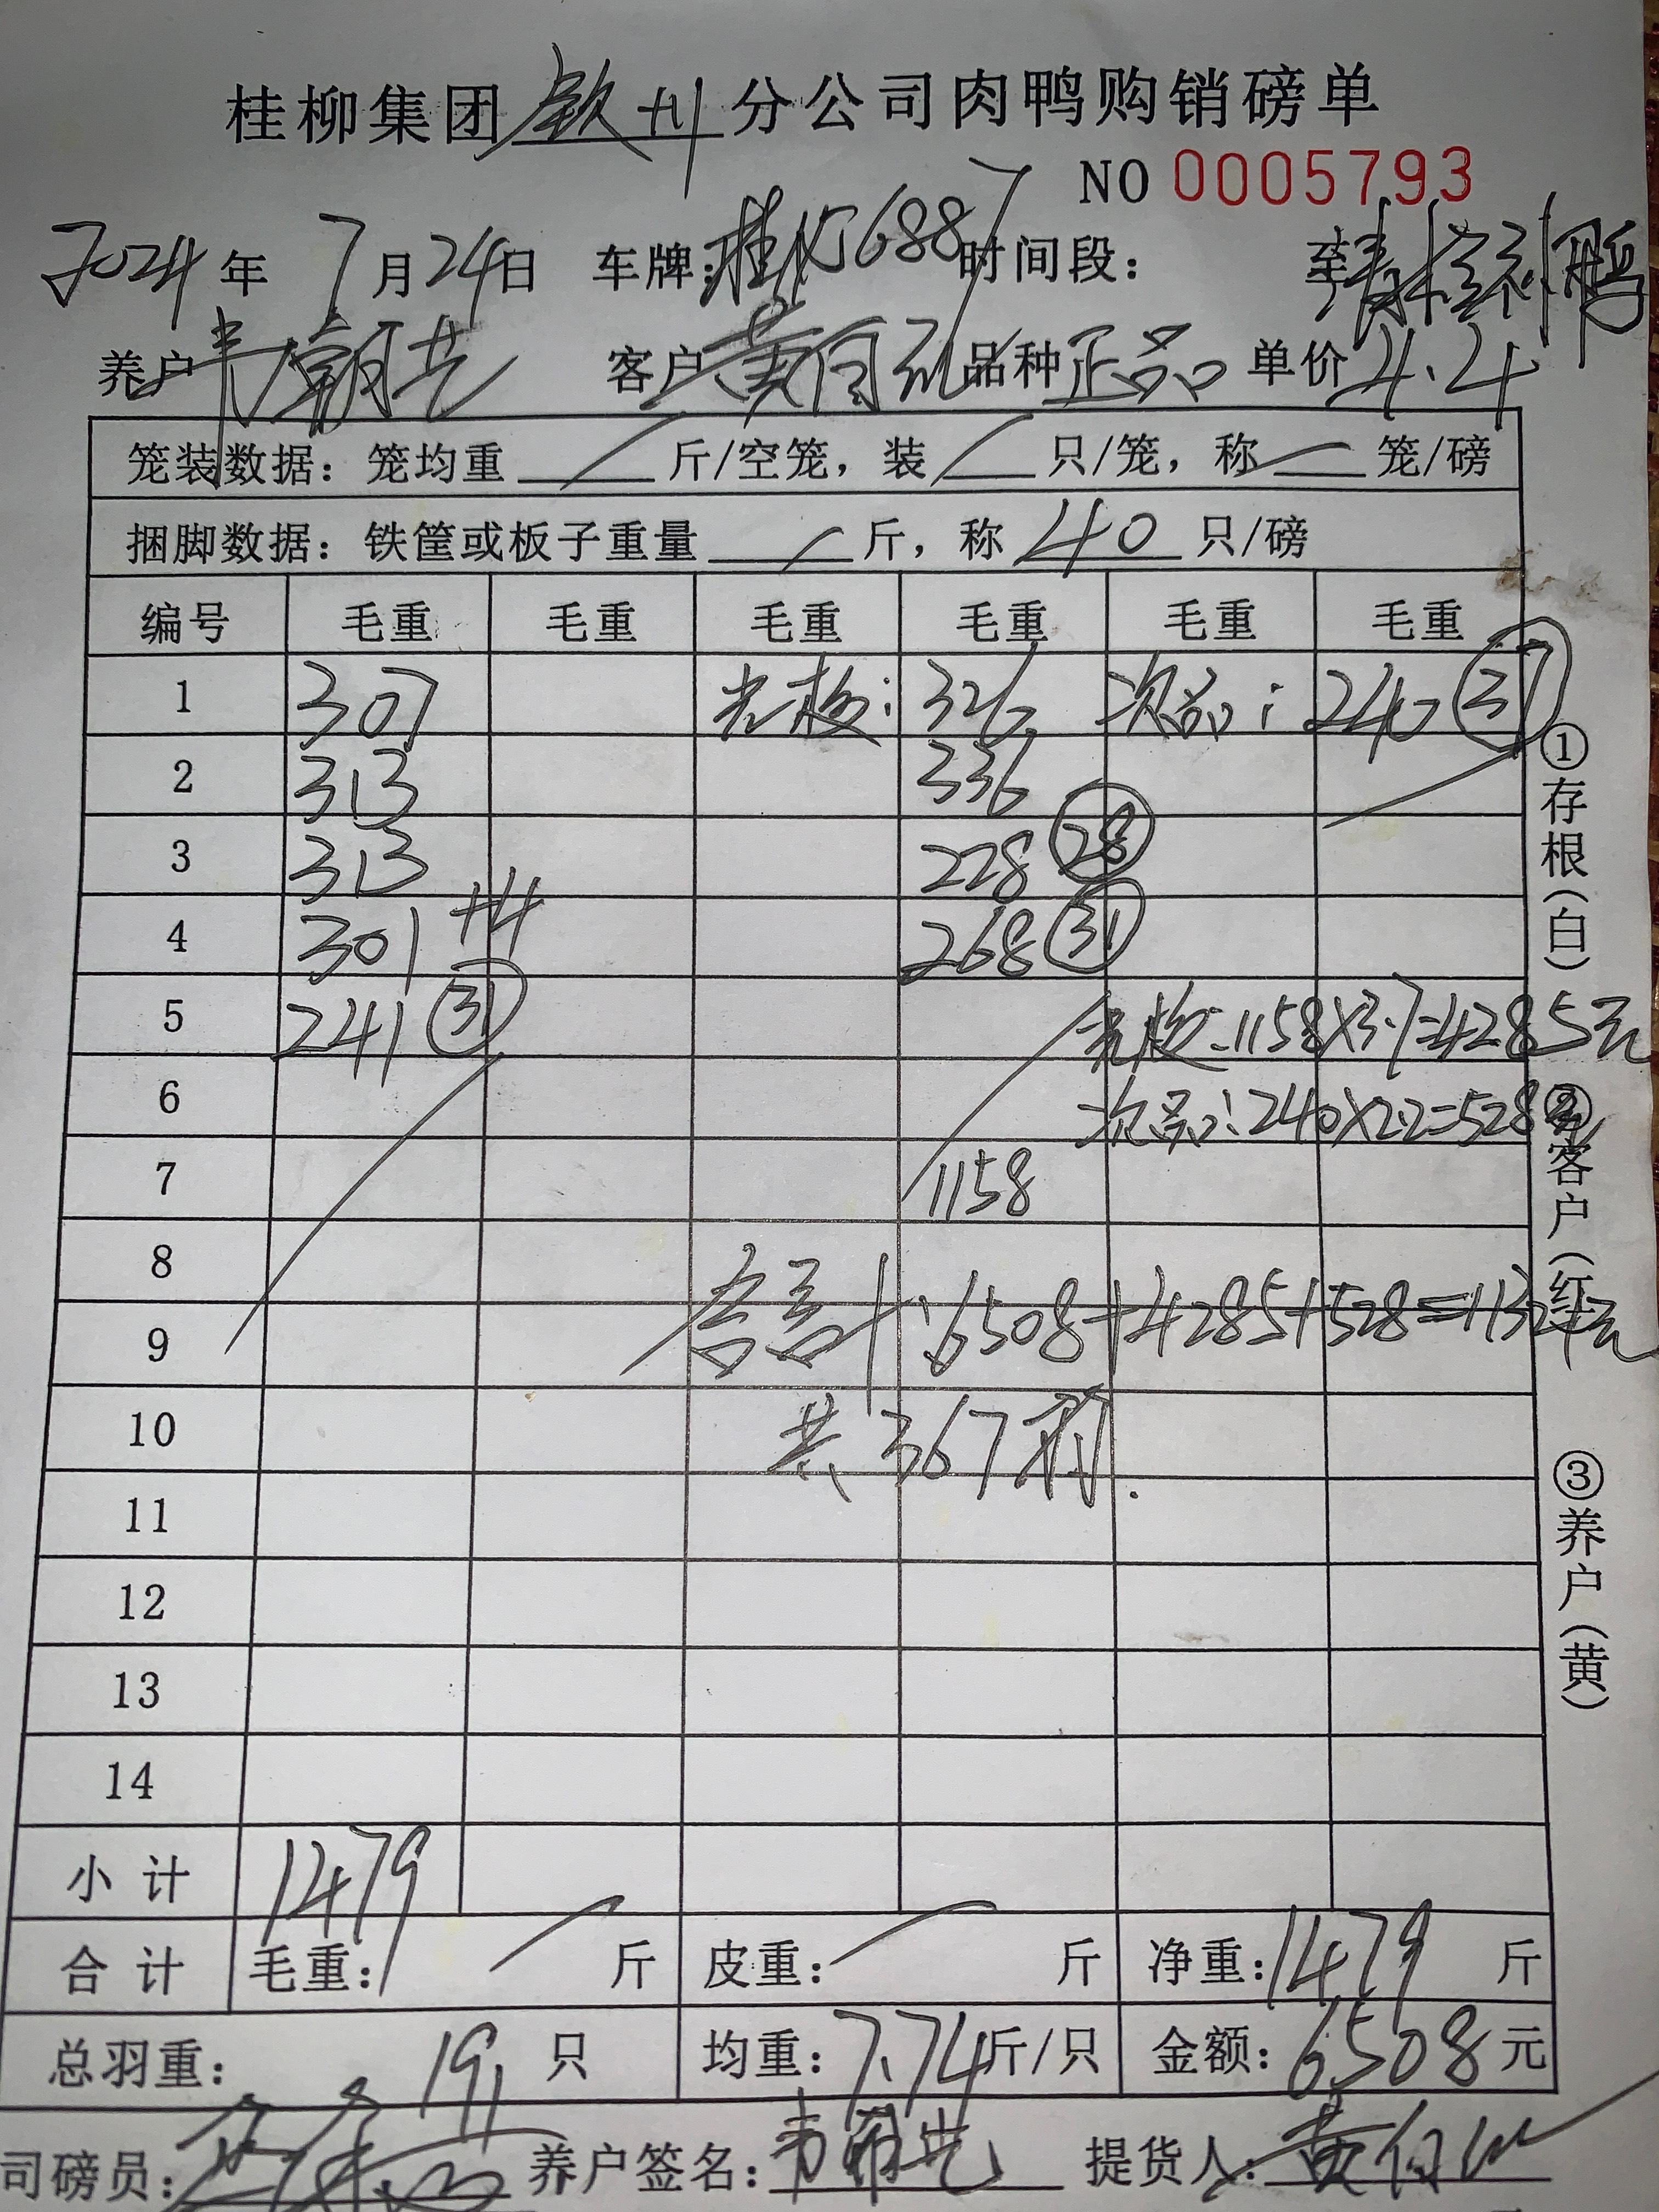 桂柳集团钦州分公司肉鸭购销磅单
NO 0005793
2024年 7月24日 车牌: 时间段: 至
养户 客户 黄 品种 正品 单价 4.4
笼装数据: 笼均重 / 斤/空笼, 装 / 只/笼, 称 / 笼/磅
捆脚数据: 铁筐或板子重量 / 斤, 称 40 只/磅
编号 毛重 毛重 毛重 毛重 毛重 毛重
1 307 光板: 326 次品: 240 ㉛
2 313 336
3 313 228 ㉘
4 301 +4 268 ㉛
5 241 ㉛ 光板:1158×3.7=4285元
6 次品:240×2.2=528元
7 1158
8
9 合计:6508+4285+528=11321元
10 共367羽.
11
12
13
14
小计 1479
合计 毛重: / 斤 皮重: / 斤 净重: 1479 斤
总羽重: 191 只 均重: 7.74 斤/只 金额: 6508 元
司磅员: 养户签名: 提货人: 黄
①存根(白)
②客户(红)
③养户(黄)